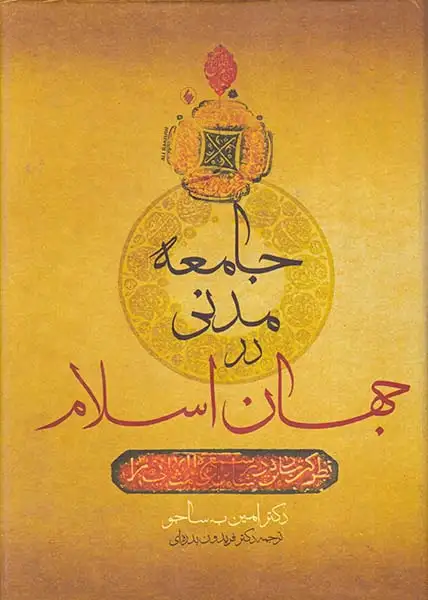 ALI BAKHTIARI
جامعه
مدنی
در
جهان اسلام
دکتر امین ب. ساجو
ترجمه دکتر فریدون بدره‌ای